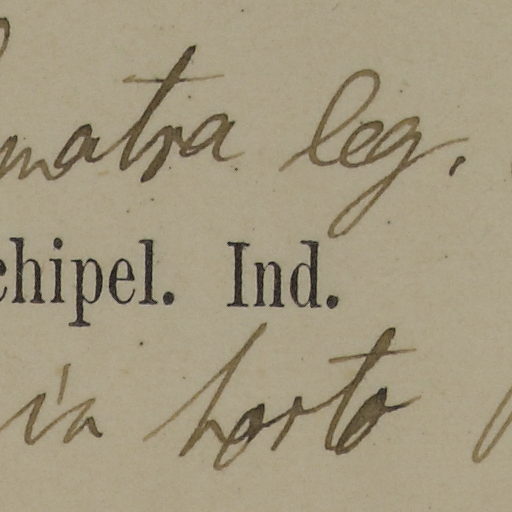 matra leg.
chipel. Ind.
in horto